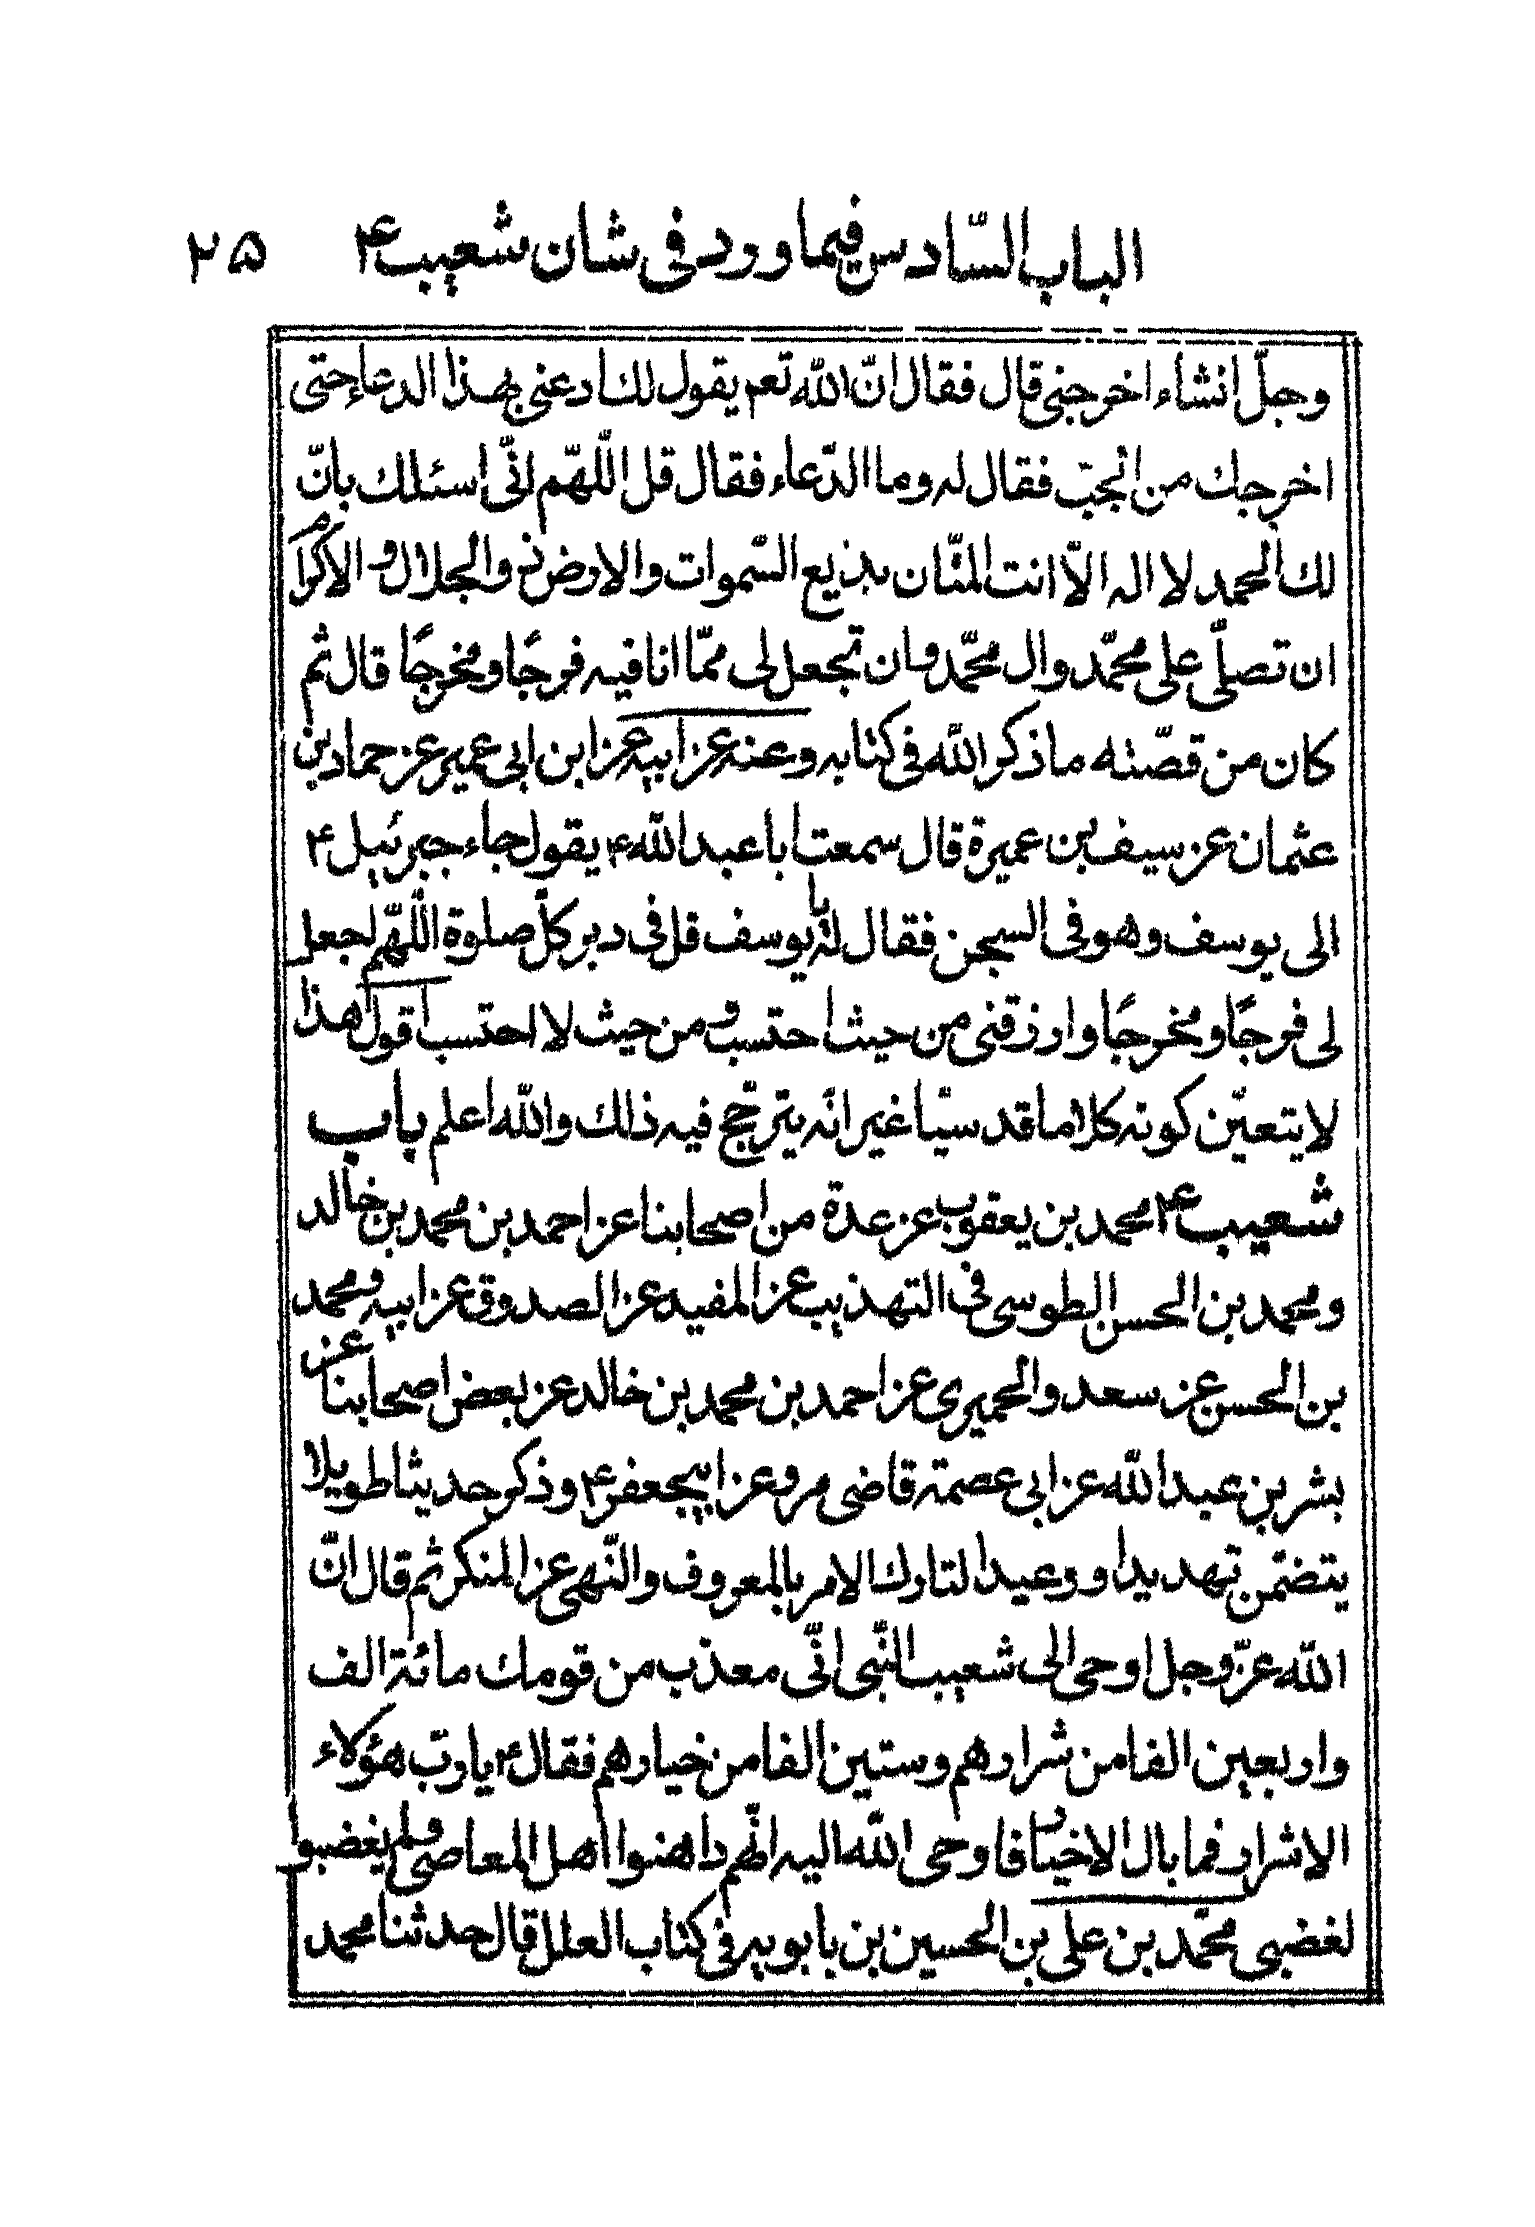 الباب السّادس فيما ورد فى شان شعيب ع ٢۵
وجلّ انشاء اخرجنى قال فقال انّ الله تعم يقول لك ادعنى بهذا الدعاء حتى
اخرجك من الجبّ فقال له وما الدّعاء فقال قل اللّهمّ انّى اسئلك بانّ
لك الحمد لا اله الاّ انت المنّان بديع السّموات والارض ذو الجلال والاكرام
ان تصلّى على محمّد وال محمّد وان تجعل لى ممّا انا فيه فرجًا ومخرجًا قال ثم
كان من قصّته ما ذكر الله فى كتابه وعنه عن ابيه عن ابن ابى عمير عن حماد بن
عثمان عن سيف بن عميرة قال سمعت ابا عبد الله ع يقول جاء جبرئيل ع
الى يوسف وهو فى السجن فقال له يا يوسف قل فى دبر كلّ صلوة اللّهمّ اجعل
لى فرجًا ومخرجًا وارزقنى من حيث احتسب ومن حيث لا احتسب اقول هذا
لا يتعيّن كونه كلاما قد سيّا غير انّه يترجّح فيه ذلك والله اعلم باب
شعيب ع محمد بن يعقوب عن عدة من اصحابنا عن احمد بن محمد بن خالد
ومحمد بن الحسن الطوسى فى التهذيب عن المفيد عن الصدوق عن ابيه ومحمد
بن الحسن عن سعد والحميرى عن احمد بن محمد بن خالد عن بعض اصحابنا عن
بشر بن عبد الله عن ابى عصمة قاضى مرو عن ابيجعفر ع وذكر حديثا طويلا
يتضمّن تهديدا ووعيدا لتارك الامر بالمعروف والنّهى عن المنكر ثم قال انّ
الله عزّ وجل اوحى الى شعيب النّبى انّى معذب من قومك مائة الف
واربعين الفا من شرارهم وستين الفا من خيارهم فقال ع يا ربّ هؤلاء
الاشرار فما بال الاخيار فاوحى الله اليه انّهم داهنوا اهل المعاصى ولم يغضبوا
لغضبى محمّد بن على بن الحسين بن بابويه فى كتاب العلل قال حدثنا محمد